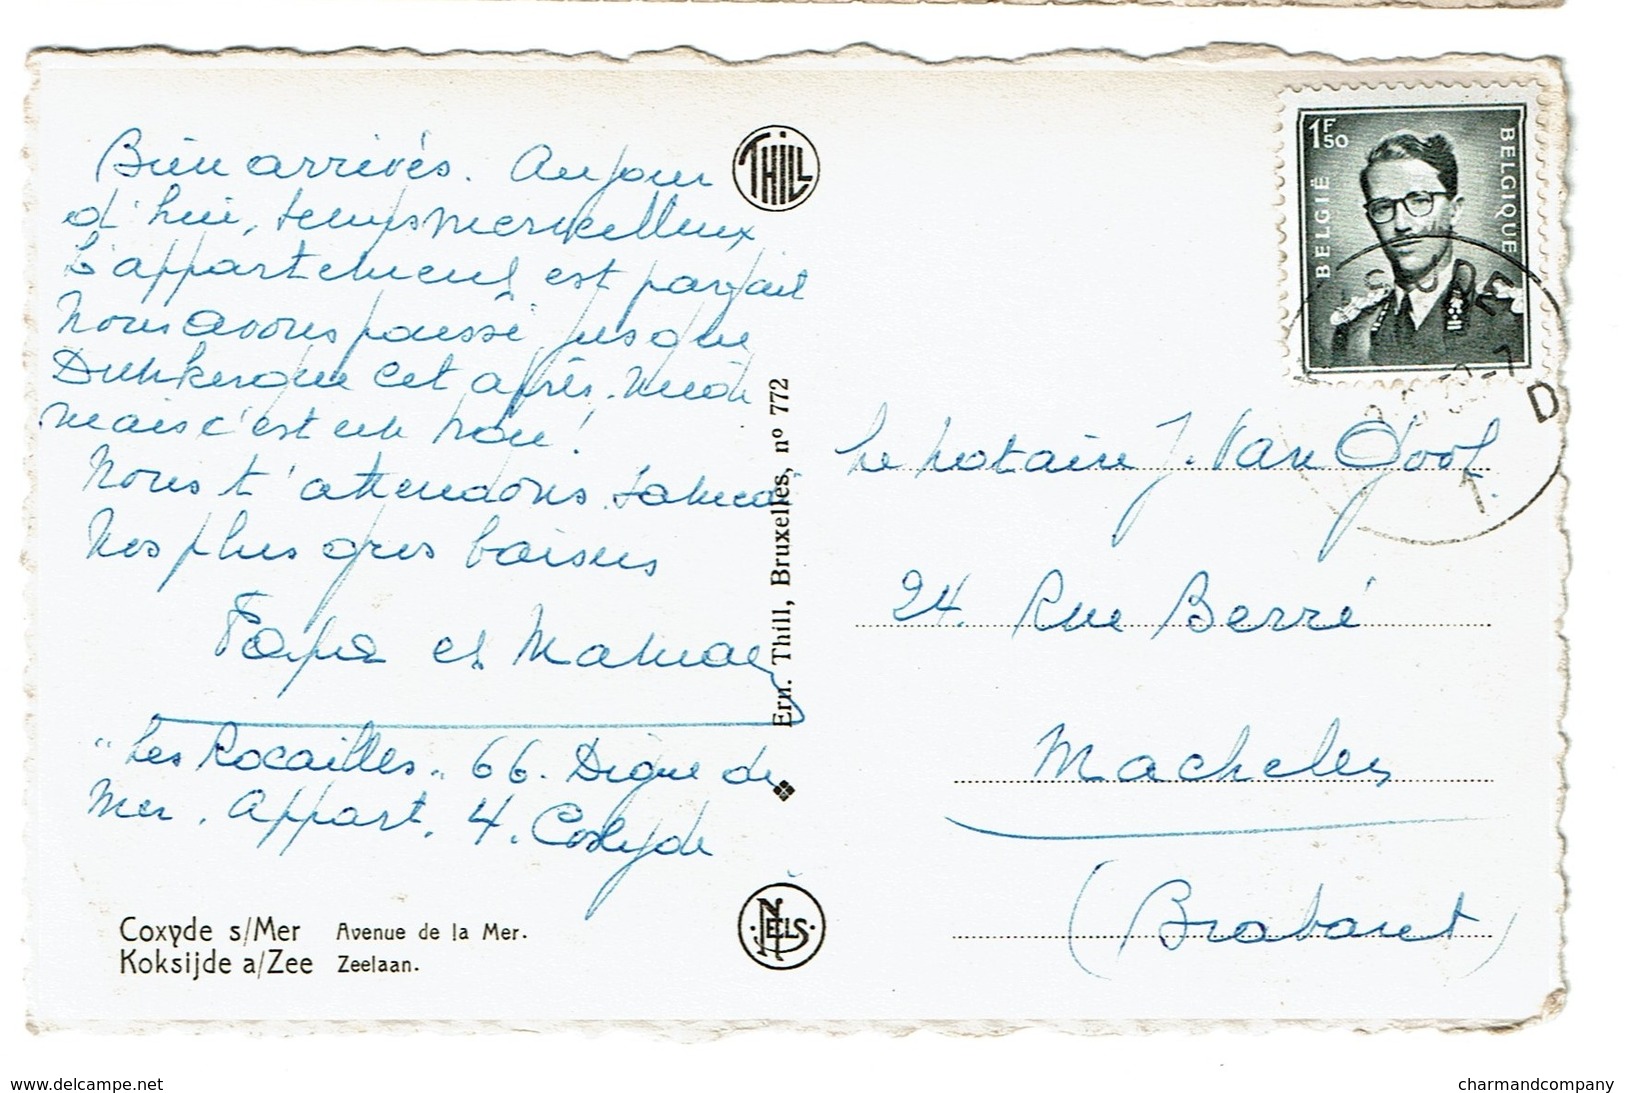 Bien arrivés. Aujour
d'hui, temps merveilleux
L'appartement est parfait
Nous avons poussé jusque
Dunkerque cet après-midi
mais c'est un trou!
Nous t'attendons samedi
Nos plus gros baisers
Papa et Maman
"Les Rocailles" 66. Digue de
Mer. Appart. 4. Coxyde
Coxyde s/Mer Avenue de la Mer.
Koksijde a/Zee Zeelaan.
THILL
Ern. Thill, Bruxelles, nº 772
NELS
1F50
BELGIË
BELGIQUE
D
1.
Le notaire J. Van Gool
24. Rue Berré
Machelen
(Brabant)
www.delcampe.net
charmandcompany